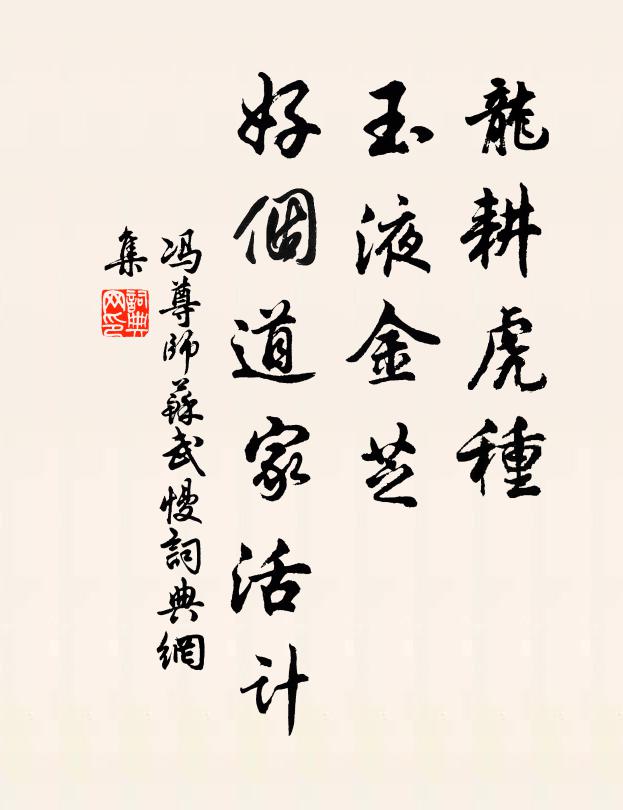 龍耕虎種
玉液金芝
好個道家活计
冯尊師蘇武慢詞典網
集
詞典
网印